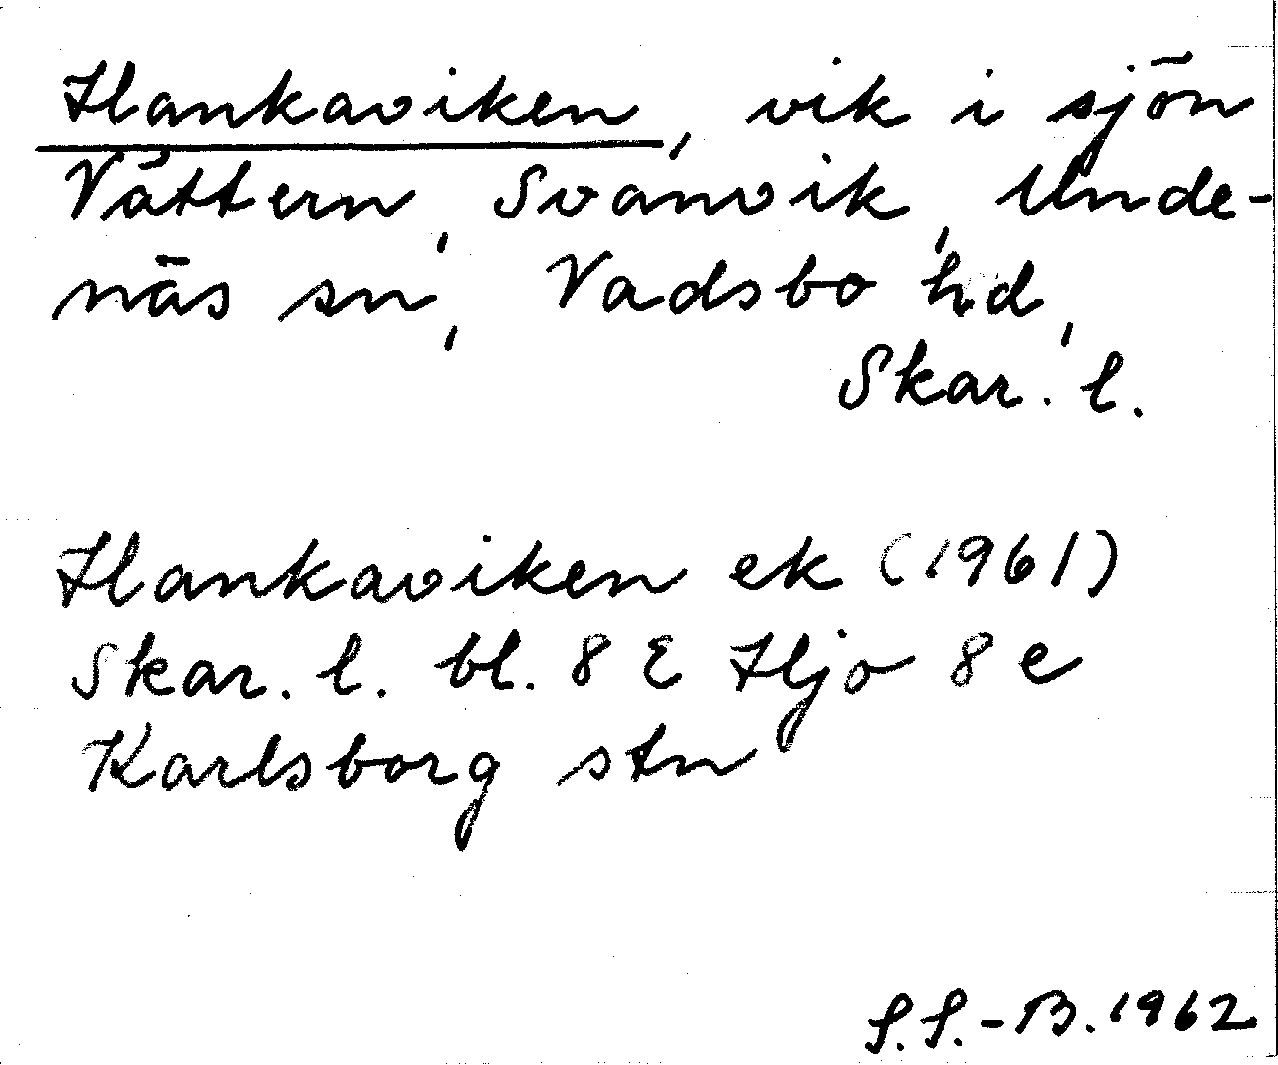 Hankaviken, vik i sjön
Vättern, Svanvik, Unde-
näs sn, Vadsbo hd,
Skar. l.
Hankaviken ek (1961)
Skar. l. bl. 8 E Hjo 8 e
Karlsborg stn
S.S.-B. 1962